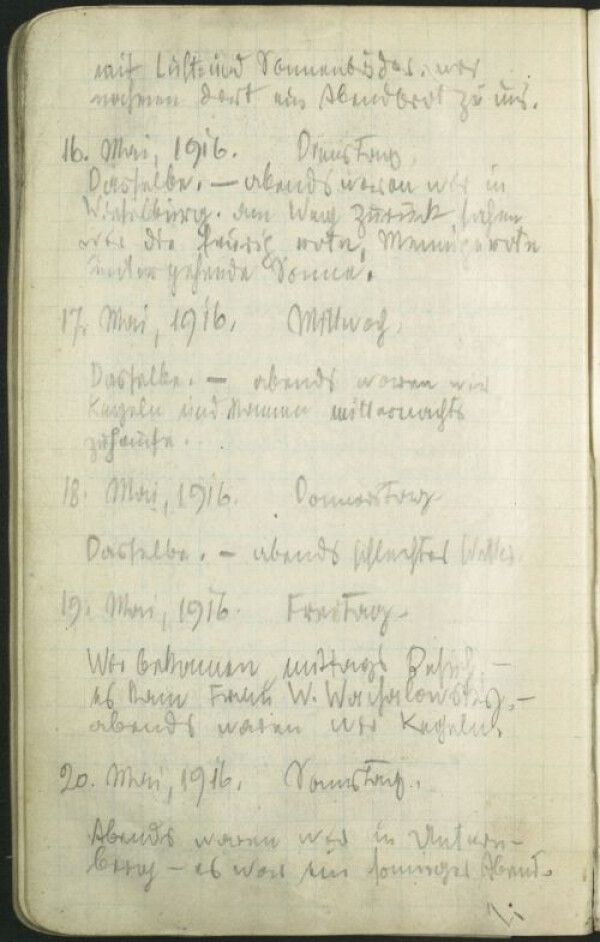 mit Luft und Sonnenbäder. wir
nahmen dort ein Abendbrot zu uns.
16. Mai, 1916. Dienstag.
Dasselbe. — abends waren wir in
Wieselburg. am Weg zurück sahen
wir die feurig rote, Mennigerote
untergehende Sonne.
17. Mai, 1916. Mittwoch.
Dasselbe. — abends waren wir
Kegeln und kamen mitternachts
zuhause.
18. Mai, 1916. Donnerstag
Dasselbe. — abends schlechtes Wetter.
19. Mai, 1916. Freitag.
Wir bekamen mittags Besuch, —
es kam Frau W. Wachalowski, —
abends waren wir Kegeln.
20. Mai, 1916. Samstag.
Abends waren wir in
— es war ein sonniger Abend.